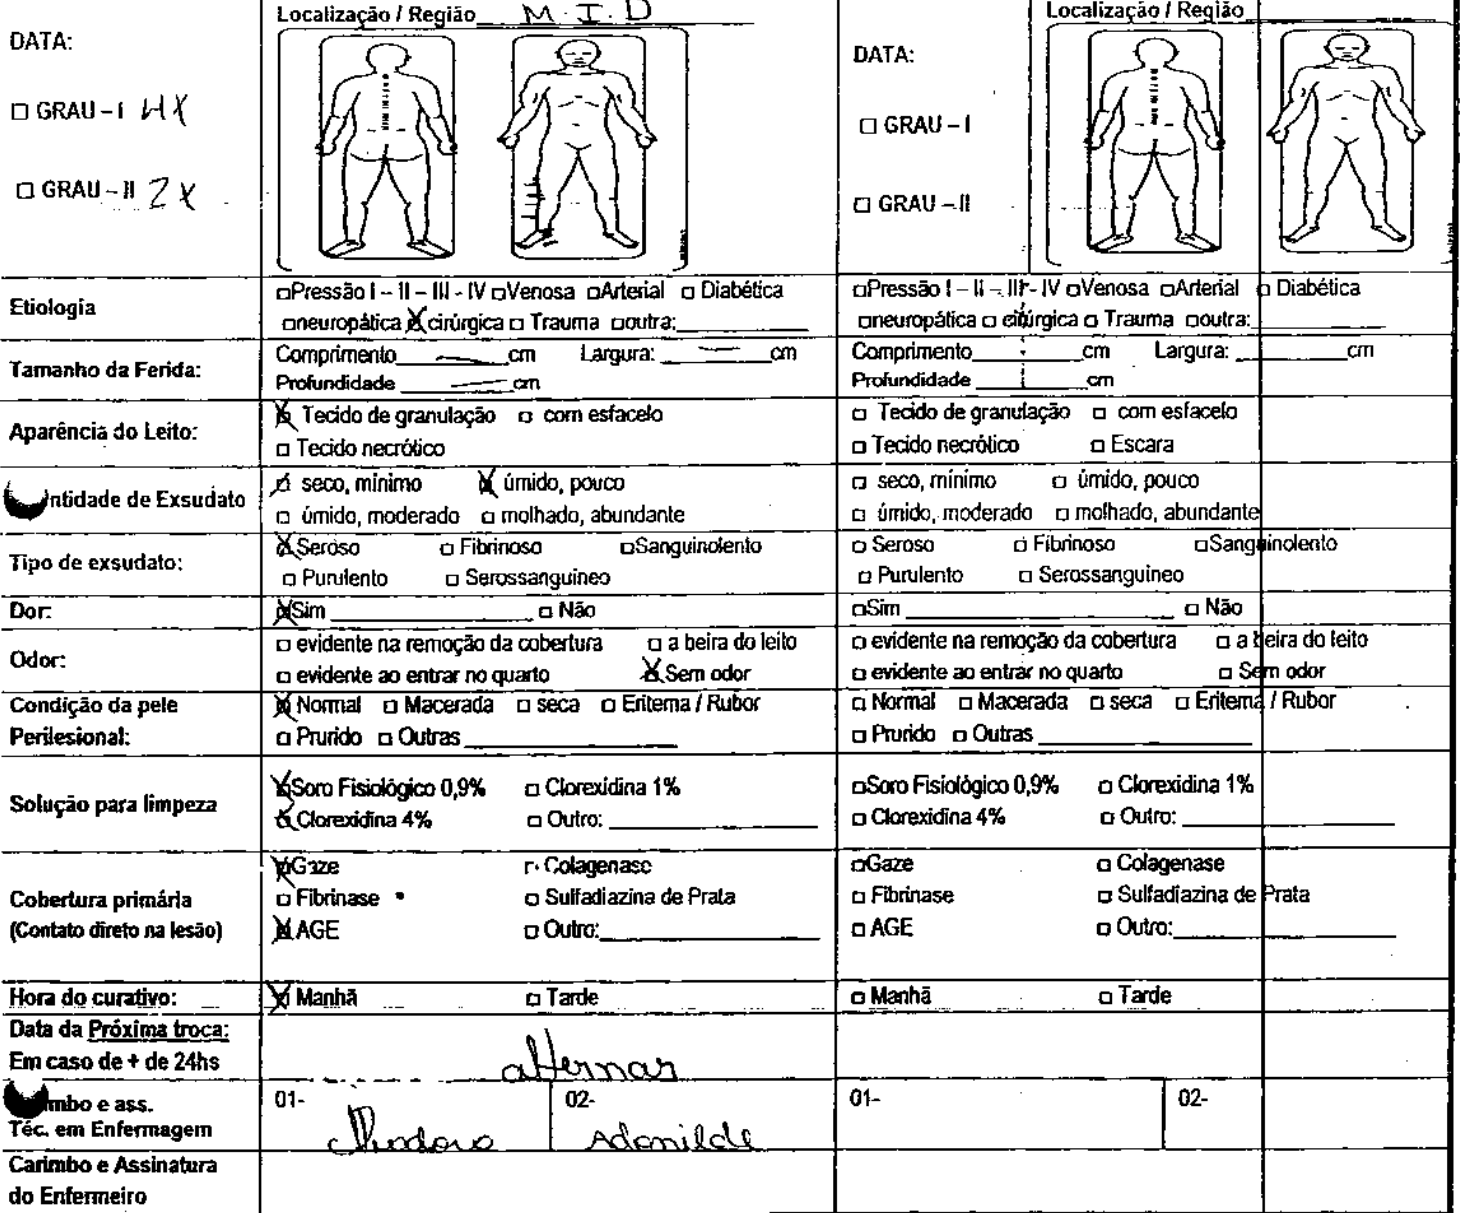 Localização / Região M.I.D
DATA:
□ GRAU – I 4X
□ GRAU – II 2X
Localização / Região
DATA:
□ GRAU – I
□ GRAU – II
Etiologia
□Pressão I – II – III - IV □Venosa □Arterial □ Diabética
□neuropática ☒cirúrgica □ Trauma □outra:
□Pressão I – II – III - IV □Venosa □Arterial □ Diabética
□neuropática □ cirúrgica □ Trauma □outra:
Tamanho da Ferida:
Comprimento — cm Largura: — cm
Profundidade — cm
Comprimento cm Largura: cm
Profundidade cm
Aparência do Leito:
☒ Tecido de granulação □ com esfacelo
□ Tecido necrótico
□ Tecido de granulação □ com esfacelo
□ Tecido necrótico □ Escara
ntidade de Exsudato
□ seco, mínimo ☒ úmido, pouco
□ úmido, moderado □ molhado, abundante
□ seco, mínimo □ úmido, pouco
□ úmido, moderado □ molhado, abundante
Tipo de exsudato:
☒ Seroso □ Fibrinoso □Sanguinolento
□ Purulento □ Serossanguíneo
□ Seroso □ Fibrinoso □Sanguinolento
□ Purulento □ Serossanguíneo
Dor:
☒Sim □ Não
□Sim □ Não
Odor:
□ evidente na remoção da cobertura □ a beira do leito
□ evidente ao entrar no quarto ☒Sem odor
□ evidente na remoção da cobertura □ a beira do leito
□ evidente ao entrar no quarto □ Sem odor
Condição da pele
Perilesional:
☒ Normal □ Macerada □ seca □ Eritema / Rubor
□ Prurido □ Outras
□ Normal □ Macerada □ seca □ Eritema / Rubor
□ Prurido □ Outras
Solução para limpeza
☒Soro Fisiológico 0,9% □ Clorexidina 1%
☒ Clorexidina 4% □ Outro:
□Soro Fisiológico 0,9% □ Clorexidina 1%
□ Clorexidina 4% □ Outro:
Cobertura primária
(Contato direto na lesão)
☒Gaze □ Colagenase
□ Fibrinase □ Sulfadiazina de Prata
☒ AGE □ Outro:
□Gaze □ Colagenase
□ Fibrinase □ Sulfadiazina de Prata
□ AGE □ Outro:
Hora do curativo:
☒ Manhã □ Tarde
□ Manhã □ Tarde
Data da Próxima troca:
Em caso de + de 24hs
alternar
mbo e ass.
Téc. em Enfermagem
01- 02- Adonilde
01- 02-
Carimbo e Assinatura
do Enfermeiro